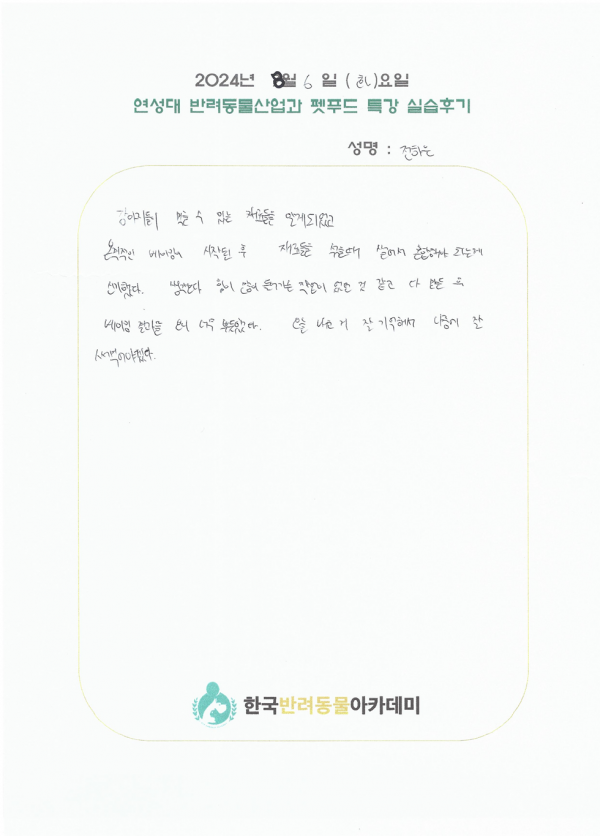 2024년 8월 6 일 (화)요일
연성대 반려동물산업과 펫푸드 특강 실습후기
성명 : 전하은
강아지들이 먹을 수 있는 재료들을 알게되었고
본격적인 베이킹이 시작된 후 재료들을 섞을때
신기했다. 생각보다 힘이 많이 들어가는 작업이 없던 것 같고 다 만든 후
베이킹 결과를 보니 너무 뿌듯했다. 오늘 나온 거 잘 기억해서 나중에 잘
새겨야겠다.
한국반려동물아카데미